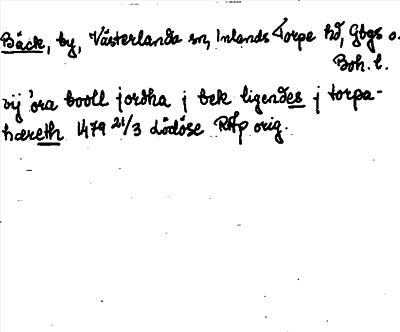 Bäck, by, Västerlanda sn, Inlands Torpe hd, Gbgs o.
Boh. l.
vij öra booll jordha j bek ligendes j torpa-
hæreth 1479 21/3 Lödöse RAp orig.